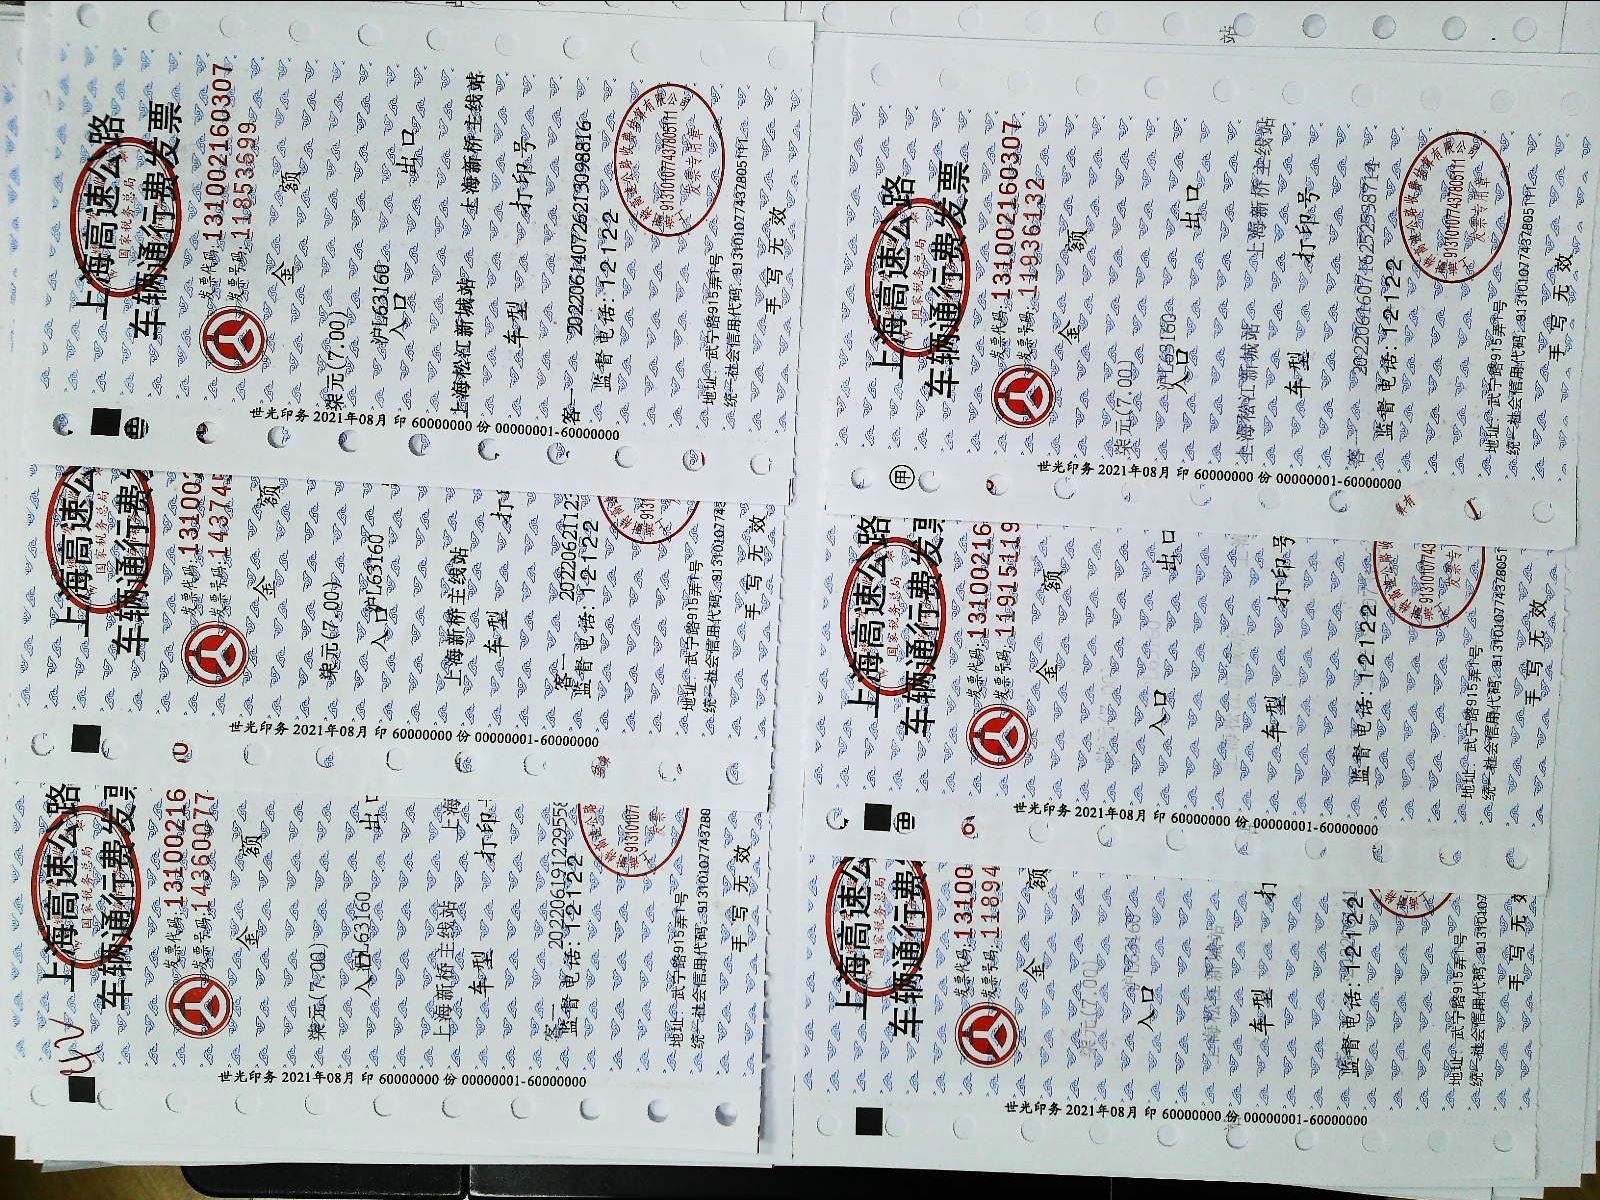 上海高速公路
国家税务总局
车辆通行费发票
发票代码:131002160307
发票号码:11853699
金 额
柒元(7.00)
沪L63160
入口 出口
上海松江新城站 上海新桥主线站
车型 打印号
客一 202206140726213098816
监督电话: 12122
地址: 武宁路915弄1号
统一社会信用代码:913101077437805111
手 写 无 效
913101077437805111
发票专用章
世光印务 2021年08月 印 60000000 份 00000001-60000000
上海高速公
国家税务总局
车辆通行费发
发票代码:13100
发票号码:14374
金 额
柒元(7.00)
沪L63160
入口
上海新桥主线站
车型 打
客一 2022062112
监督电话: 12122
地址: 武宁路915弄1号
统一社会信用代码:9131010774
手 写 无 效
世光印务 2021年08月 印 60000000 份 00000001-60000000
上海高速公路
国家税务总局
车辆通行费发票
发票代码:13100216
发票号码:14360077
金 额
柒元(7.00)
沪L63160
入口 出
上海新桥主线站 上海
车型 打印
客一 2022061912295
监督电话: 12122
地址: 武宁路915弄1号
统一社会信用代码:9131010774378
手 写 无 效
世光印务 2021年08月 印 60000000 份 00000001-60000000
站
上海高速公路
国家税务总局
车辆通行费发票
发票代码:131002160307
发票号码:11936132
金 额
柒元(7.00)
沪L63160
入口 出口
上海松江新城站 上海新桥主线站
车型 打印号
客一
监督电话: 12122
地址: 武宁路915弄1号
统一社会信用代码:913101077437805111
手 写 无 效
913101077437805111
发票专用章
世光印务 2021年08月 印 60000000 份 00000001-60000000
上海高速公路
国家税务总局
车辆通行费发票
发票代码:13100216
发票号码:11915119
金 额
入口 出口
车型 打印号
监督电话: 12122
地址: 武宁路915弄1号
统一社会信用代码:913101077437805
手 写 无 效
世光印务 2021年08月 印 60000000 份 00000001-60000000
上海高速公
国家税务总局
车辆通行费
发票代码:13100
发票号码:11894
金 额
柒元(7.00)
入口
车型 打
监督电话: 12122
地址: 武宁路915弄1号
统一社会信用代码:9131010
手 写 无
世光印务 2021年08月 印 60000000 份 00000001-60000000